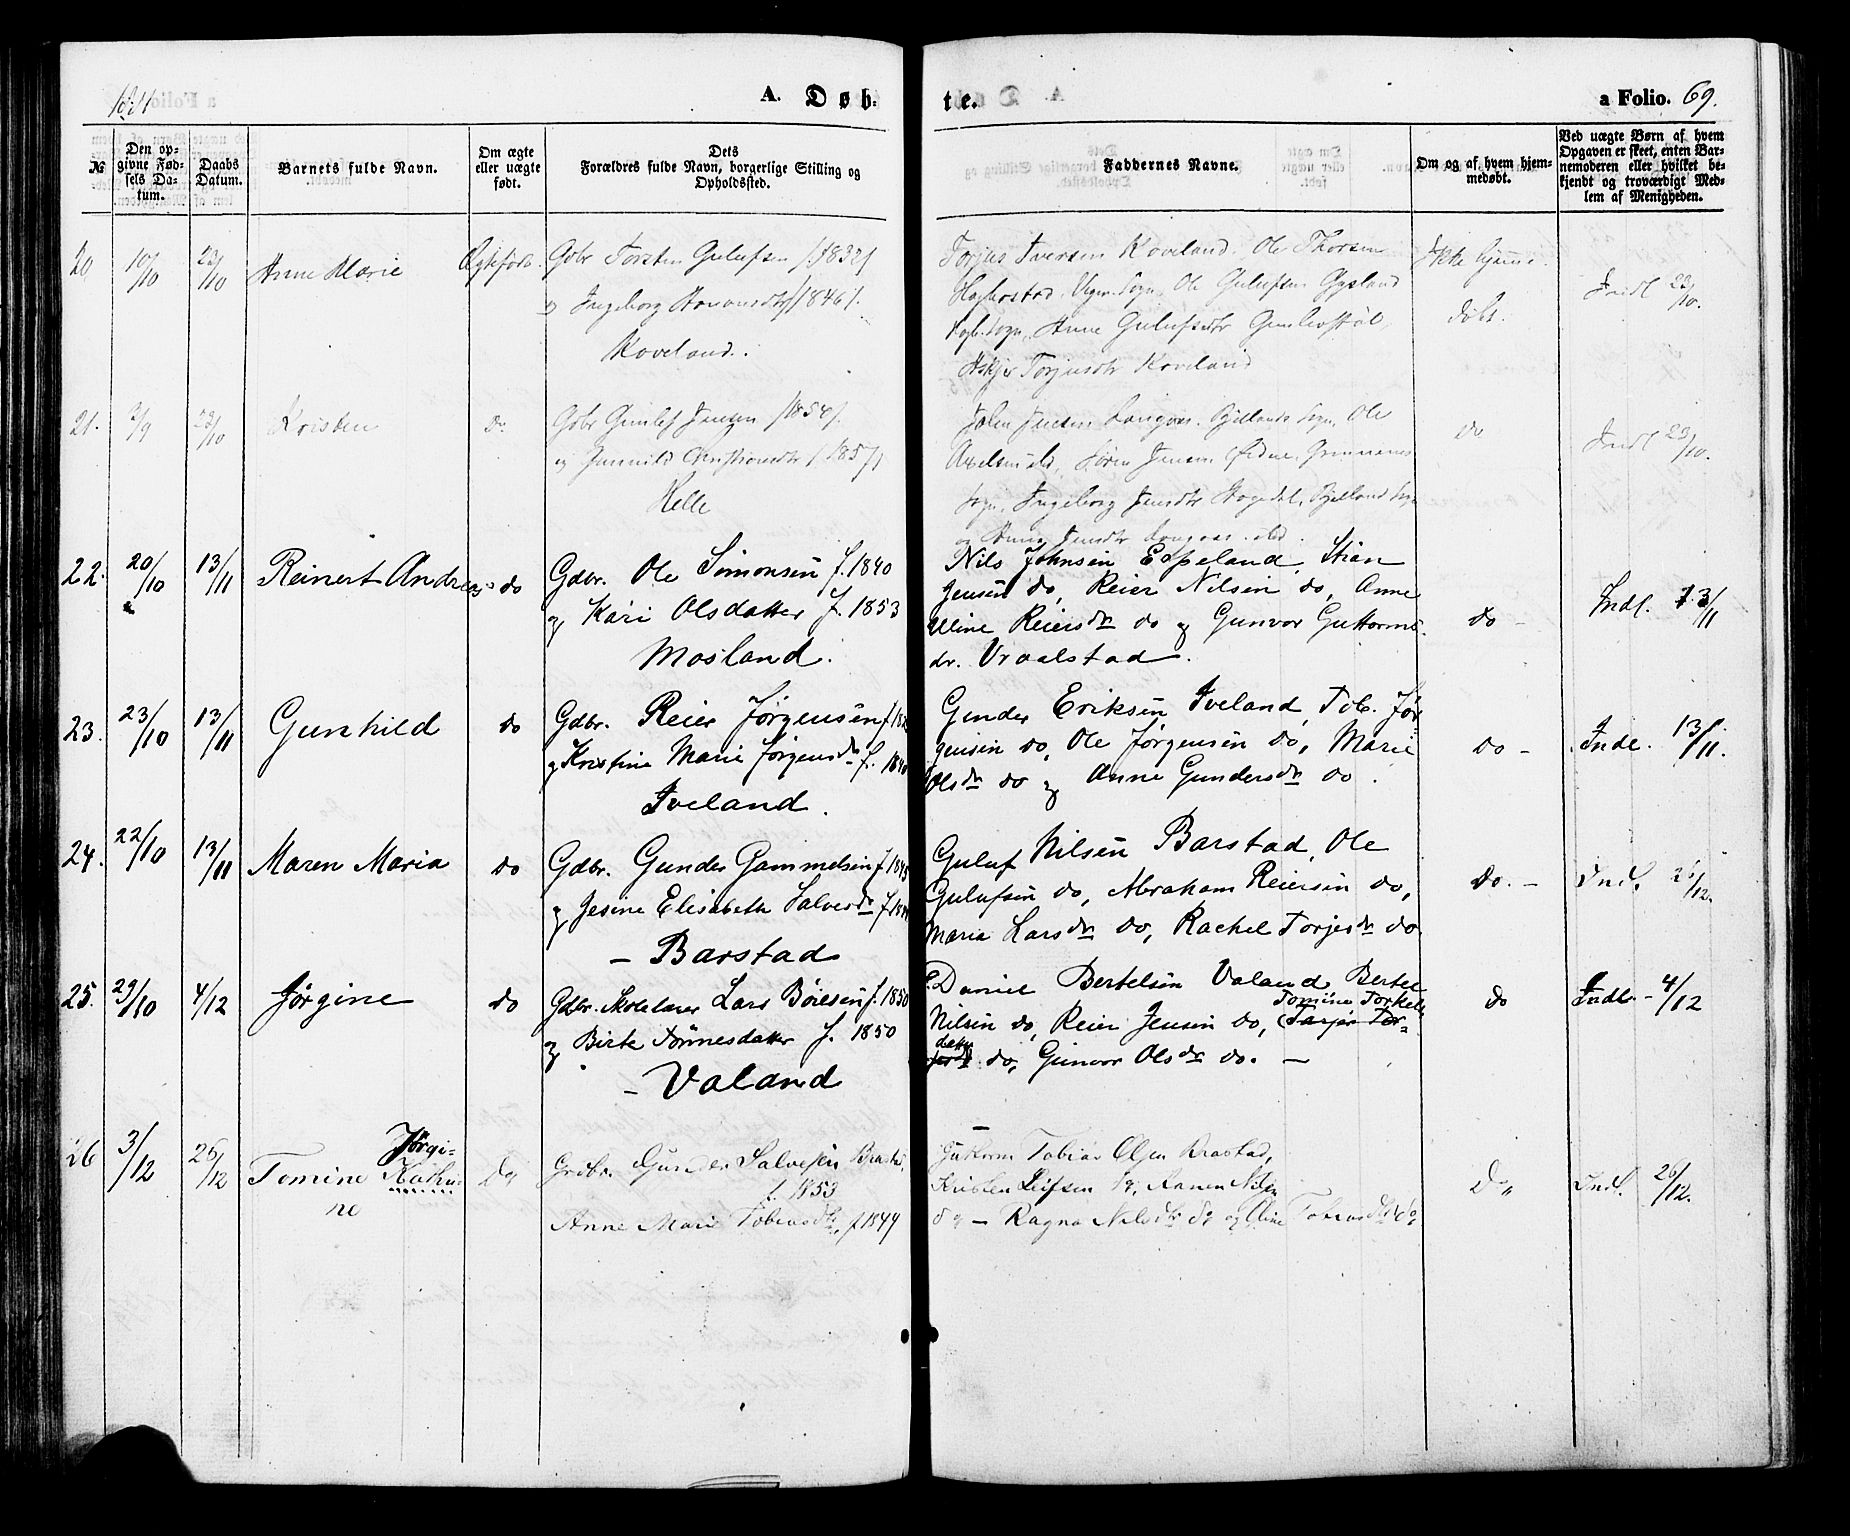 A. Døb-
te.
a Folio. 69.
№
Den op-
givne Fød-
sels Da-
tum.
Daabs
Datum.
Barnets fulde Navn.
Om ægte
eller uægte
født.
Dets
Forældres fulde Navn, borgerlige Stilling og
Opholdssted.
Faddernes Navne.
Om og af hvem hjem-
medøbt.
Ved uægte Børn af hvem
Opgaven er skeet, enten Bar-
nemoderen eller hvilket be-
kjendt og troværdigt Med-
lem af Menigheden.
20
10/10
23/10
Anne Marie
Ægtefød.
Gdbr Torsten Gulufsen /f 1832/
og Ingeborg /1846/.
Koveland.
Torjus Iversen Koveland. Ole Thorsen
Ole Gulufsen Gysland
Anne Gulufsdtr
Torjusdtr Koveland
Ikke hjemme
døbt.
Indl 23/10.
21.
23/10
Kristen
do
Gdbr Gunluf Jensen /1854/.
og Gunnild Christiansdtr /1857/
Helle
John Jensen Bjellands Sogn, Ole
Søren Jensen
Sogn, Ingeborg Jensdtr Bjelland Sogn
og Jensdtr
do
Indl 23/10.
22.
20/10
13/11
Reinert Andreas
do
Gdbr. Ole Simonsen f. 1840
og Kari Olsdatter f. 1853
Mosland.
Nils Johnsen Espeland, Stian
Jensen do, Reier Nilsen do, Anne
Eline Reiersdtr do og Gunvor Guttorms-
dr. Vraalstad.
do -
Indl. 13/11
23.
23/10
13/11
Gunhild
do
Gdbr. Reier Jørgensen
og Kristine Marie Jørgensdtr f.
Iveland.
Gunder Eriksen Iveland, Tob. Jør-
gensen do, Ole Jørgensen do, Marie
Olsdtr do og Anne Gundersdtr do.
do -
Indl. 13/11.
24.
22/10
13/11
Maren Maria
do
Gdbr. Gunder Gammelsen f. 1845
og Jesine Elisabeth Salvesdtr
- Barstad
Guluf Nilsen Barstad, Ole
Gulufsen do, Abraham Reiersen do,
Maria Larsdtr do, Rachel Torjesdtr do.
Do. -
Indl. 26/12.
25.
29/10
4/12
Jørgine
do
Gdbr. Skolelærer Lars Børesen f. 1850
og Birte Tønnesdatter f. 1850
- Valand
Daniel Bertelsen Valand, Bertel
Nilsen do, Reier Jensen do, Tomine Torkels
datter do, Gunvor Olsdtr do. -
do
Indl. - 4/12
26
3/12
26/12
Tomine Jørgi-
ne
Do
Gdbr. Gunder Salvesen Brastad,
f. 1853
Anne Marie Tobiasdtr, f 1849
Guttorm Tobias Olsen Brastad,
Kristen Leifsen do, Aanen Nilsen
do - Ragna Nilsdtr do og Eline Tobiasdtr do
Do
Indl. 26/12.